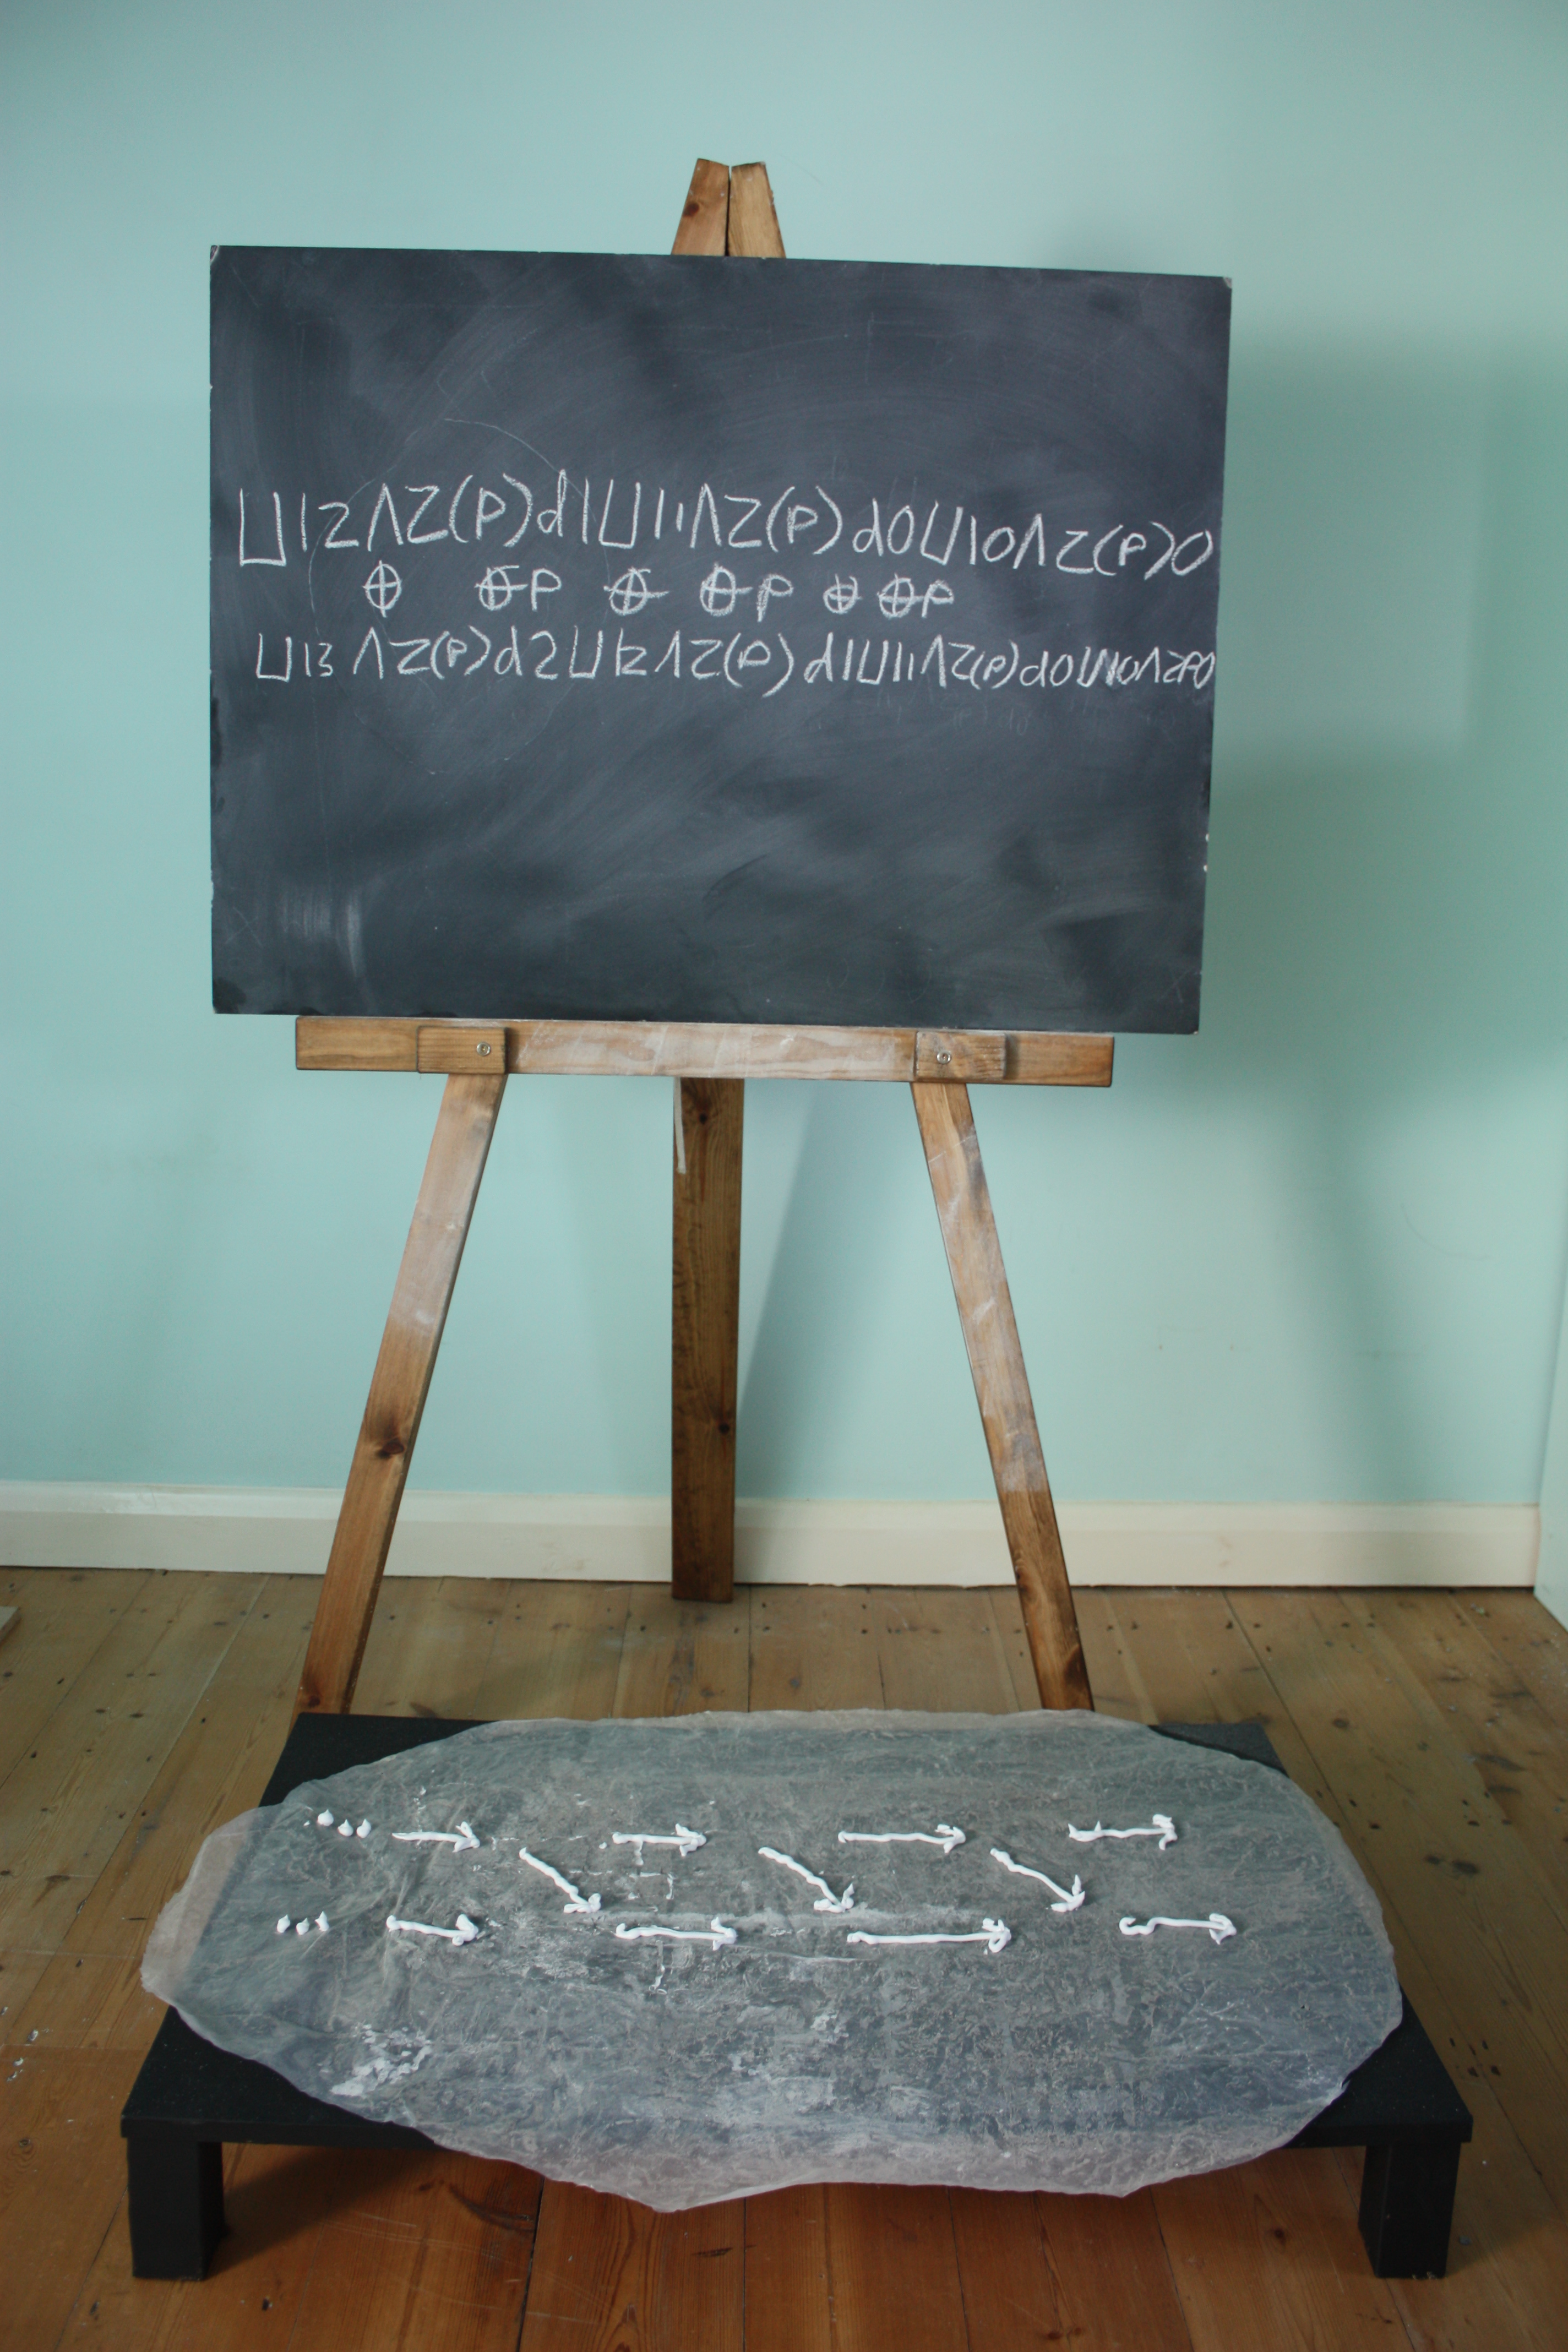 ⨆12ΛZ(P)d1⨆11ΛZ(P)d0⨆10ΛZ(P)0
⊕ ⊕P ⊕ ⊕P ⊕ ⊕P
⨆13ΛZ(P)d2⨆12ΛZ(P)d1⨆11ΛZ(P)d0⨆10ΛZP0
... → → → →
↘ ↘ ↘
... → → → →